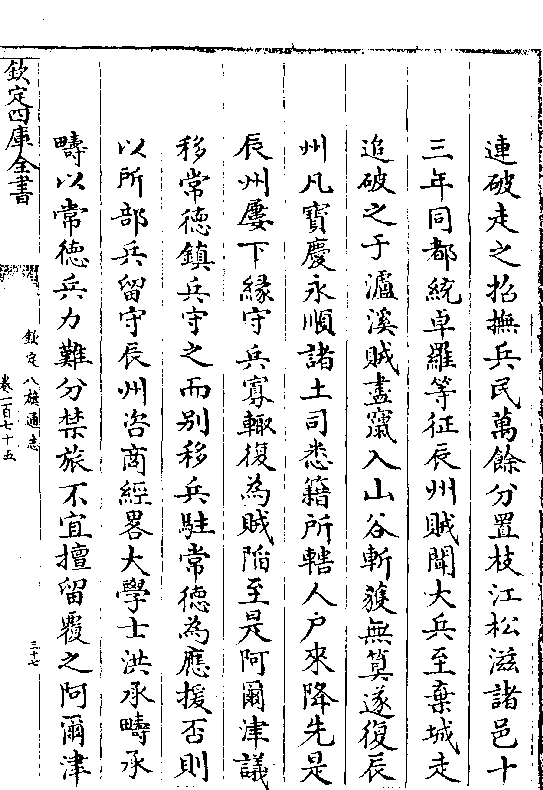 連破走之招撫兵民萬餘分置枝江松滋諸邑十
三年同都統卓羅等征辰州賊聞大兵至棄城走
追破之于瀘溪賊盡竄入山谷斬獲無算遂復辰
州凡寶慶永順諸土司悉籍所轄人户來降先是
辰州屢下緣守兵寡輙復為賊陷至是阿爾津議
移常德鎮兵守之而别移兵駐常德為應援否則
以所部兵留守辰州咨商經畧大學士洪承疇承
疇以常德兵力難分禁旅不宜擅留覆之阿爾津
欽定四庫全書
欽定八旗通志
卷一百七十五
三十七